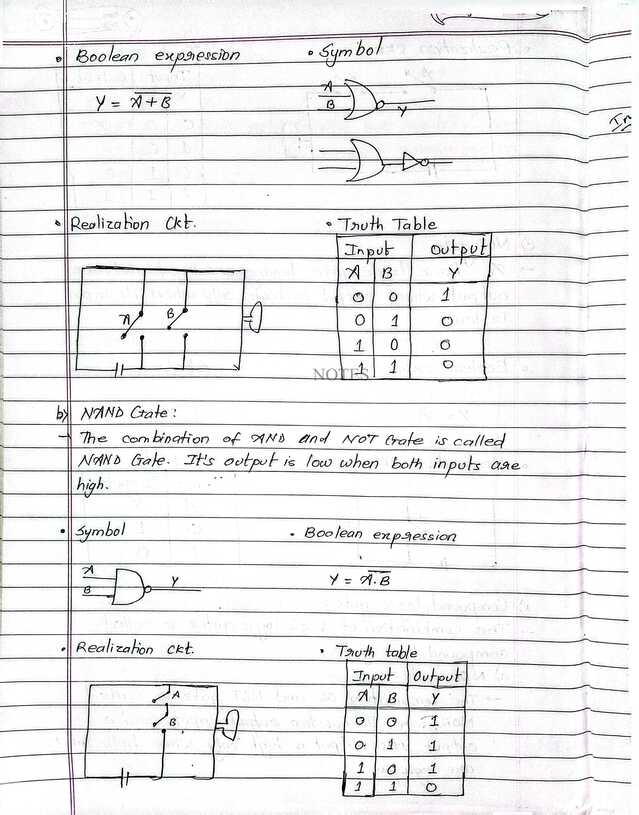 • Boolean expression
Y = \overline{A+B}
• Symbol
A
B
Y
• Realization Ckt.
A
B
• Truth Table
Input Output
A B Y
0 0 1
0 1 0
1 0 0
1 1 0
NOTES
b) NAND Gate:
→ The combination of AND and NOT Gate is called
NAND Gate. It's output is low when both inputs are
high.
• Symbol
A
B
Y
• Boolean expression
Y = \overline{A.B}
• Realization ckt.
A
B
• Truth table
Input Output
A B Y
0 0 1
0 1 1
1 0 1
1 1 0